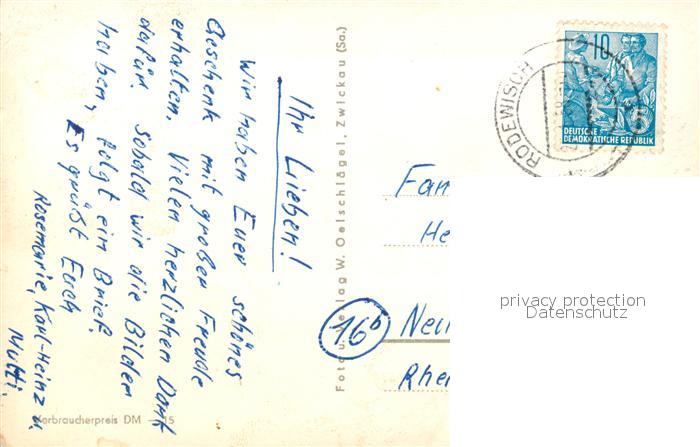 Ihr Lieben!
Wir haben Euer schönes
Geschenk mit großer Freude
erhalten. Vielen herzlichen Dank
dafür. Sobald wir die Bilder
haben, folgt ein Brief.
Es grüßt Euch
Rosemarie, Karl-Heinz u.
Mutti.
Foto u. Verlag W. Oelschlägel, Zwickau (Sa.)
Verbraucherpreis DM -.15
RODEWISCH
10
DEUTSCHE
DEMOKRATISCHE REPUBLIK
Fam
He
16b
Neu
Rhe
privacy protection
Datenschutz